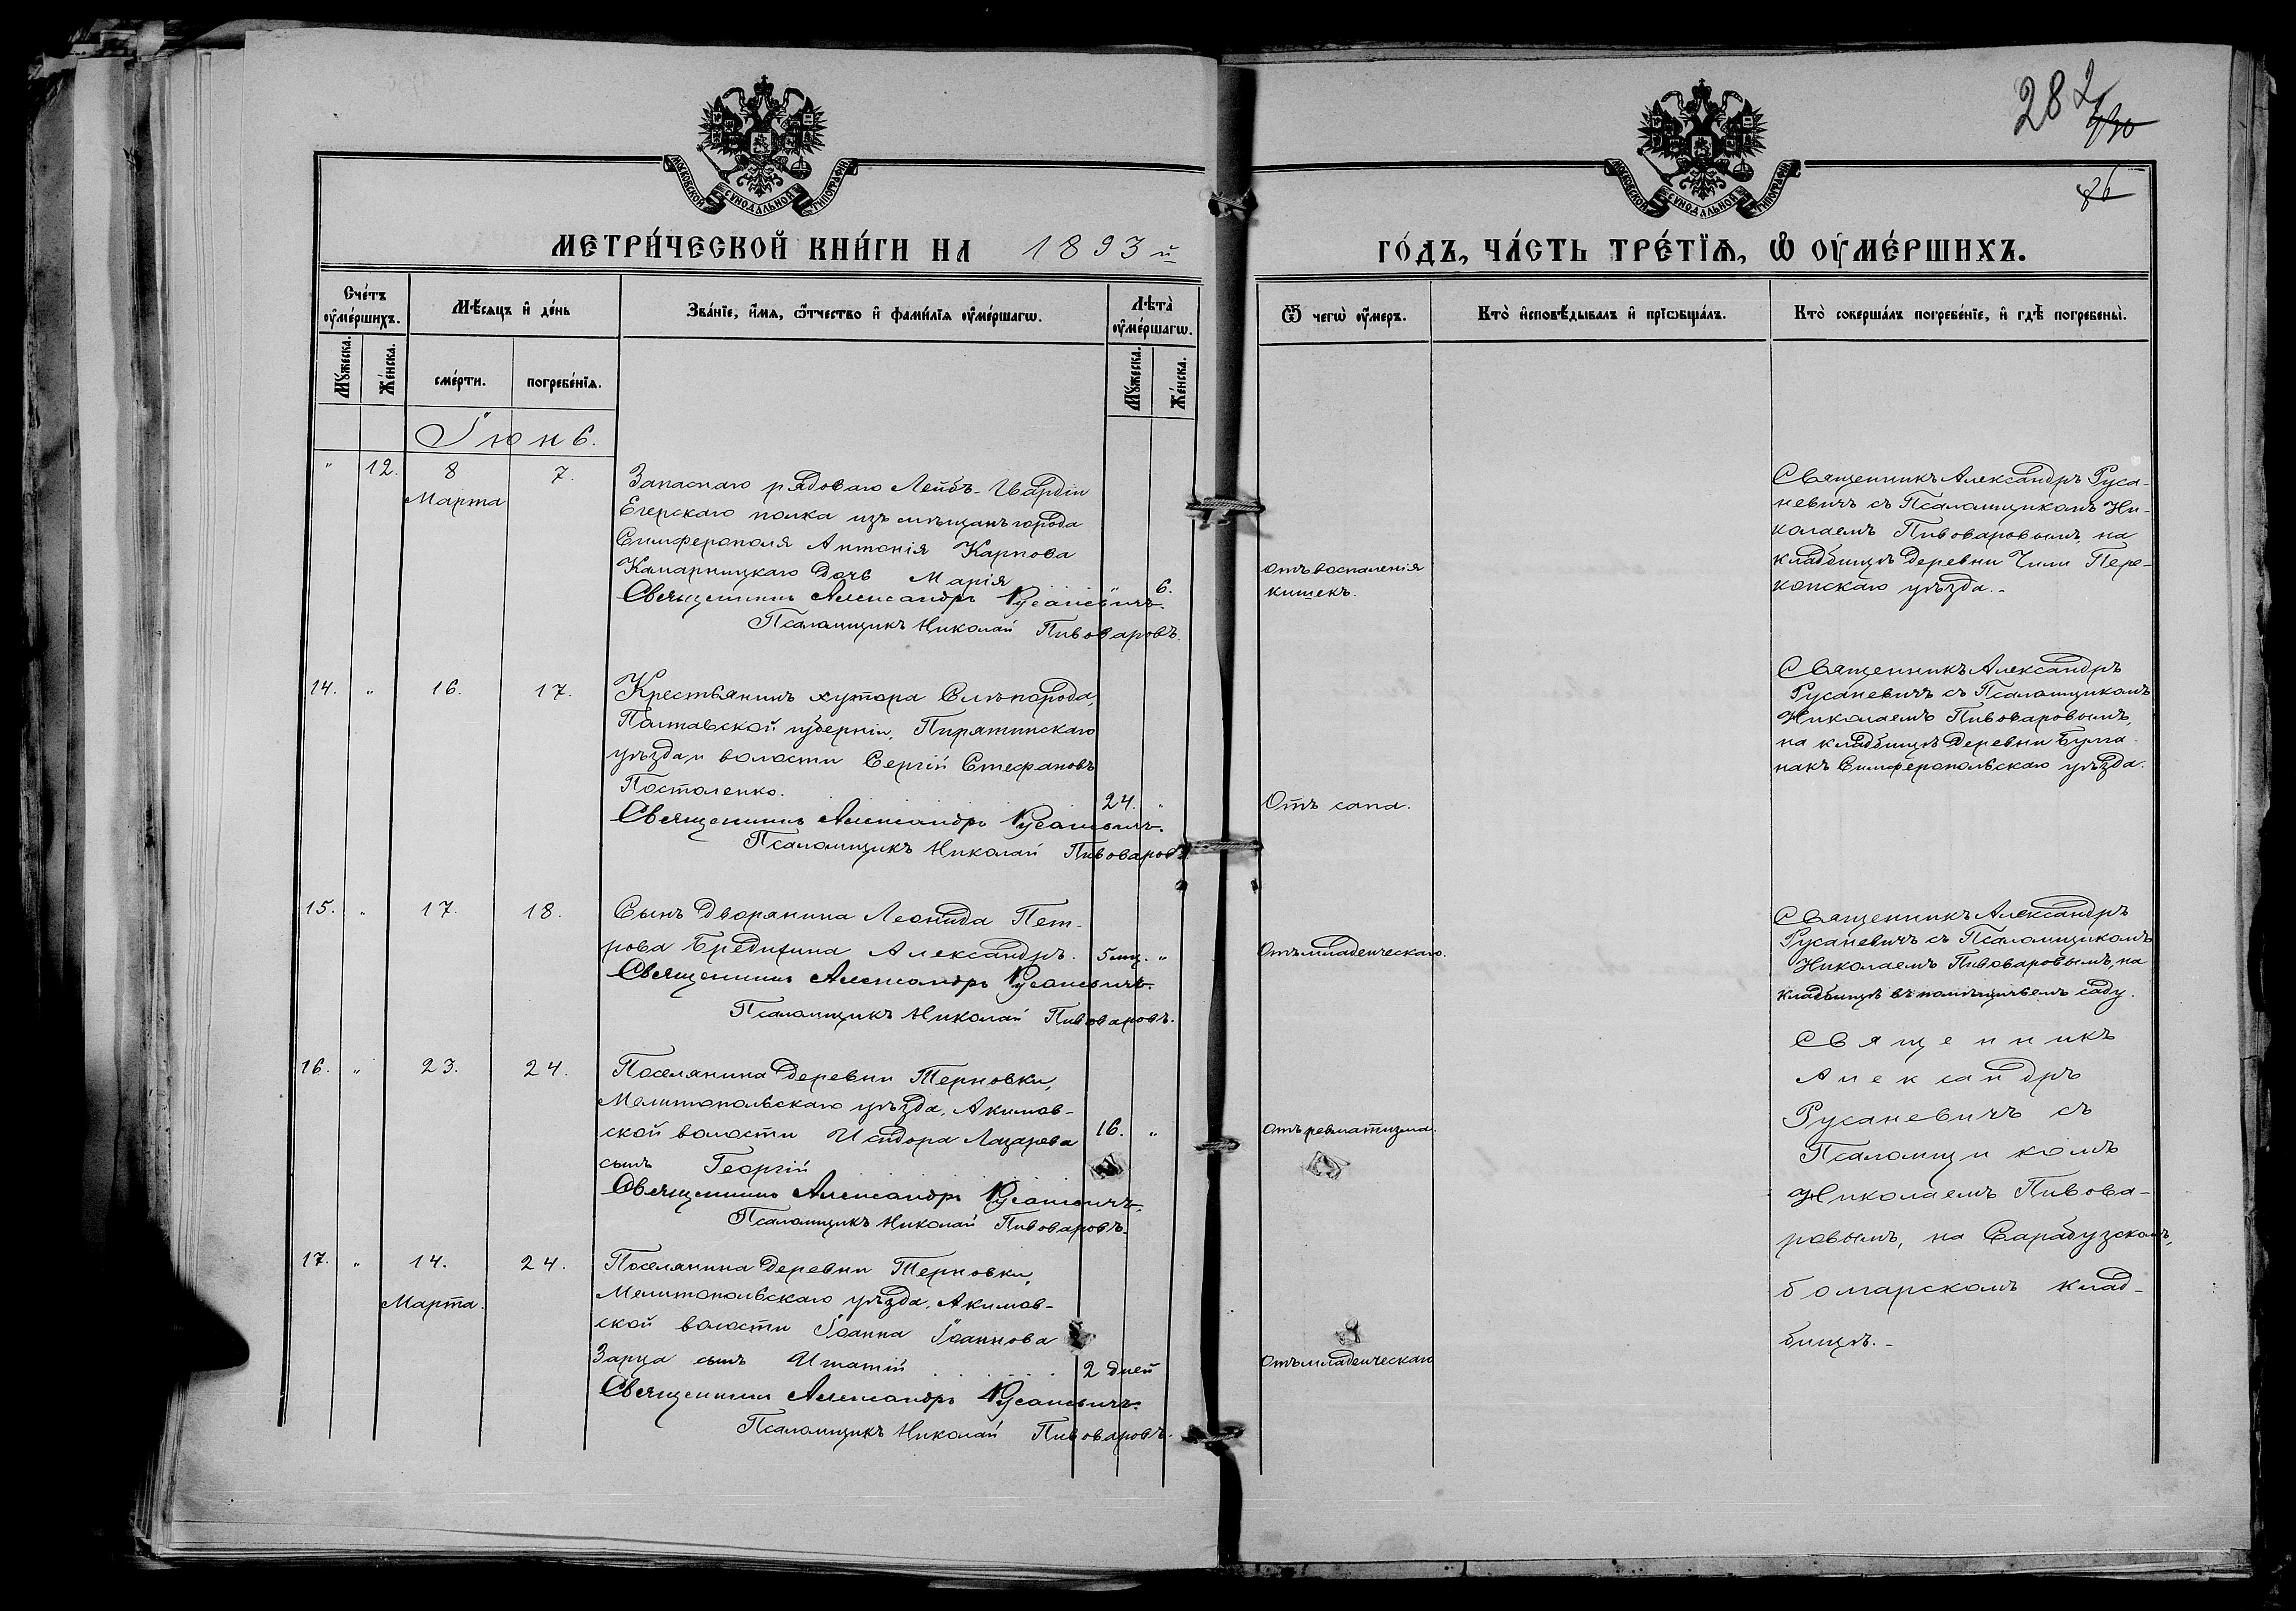 282
МОСКОВСКОЙ СѴНОДАЛЬНОЙ ТИПОГРАФІИ
МОСКОВСКОЙ СѴНОДАЛЬНОЙ ТИПОГРАФІИ
МЕТРИ́ЧЕСКОЙ КНИ́ГИ НА 1893 й
ГО́ДЪ, ЧА́СТЬ ТРЕ́ТЇѦ, Ѽ ОУ҆МЕ́РШИХЪ.
Сче́тъ оу҆ме́ршихъ.
Мѣ́сѧцъ и҆ де́нь
Зва́нїе, и҆́мѧ, ѻ҆́тчество и҆ фами́лїѧ оу҆ме́ршагѡ.
Лѣ́та оу҆ме́ршагѡ.
Ѿ чегѡ̀ оу҆́меръ.
Кто̀ и҆сповѣ́дывалъ и҆ прїѡбща́лъ.
Кто̀ соверша́лъ погребе́нїе, и҆ гдѣ̀ погребены̀.
Мꙋ́жеска.
Же́нска.
сме́рти.
погребе́нїѧ.
Мꙋ́жеска.
Же́нска.
Іюнь.
" 12. 8 7.
Марта
Запаснаго рядоваго Лейбъ-Гвардіи
Егерскаго полка изъ мѣщанъ города
Симферополя Антонія Карпова
Камарницкаго дочь Марія
" 6.
Священникъ Александръ Русаневичъ.
Псаломщикъ Николай Пивоваровъ.
отъ воспаленія
кишекъ.
Священникъ Александръ Руса-
невичъ съ Псаломщикомъ Ни-
колаемъ Пивоваровымъ, на
кладбищѣ деревни Чили Пере-
копскаго уѣзда.-
14. " 16. 17.
Крестьянинъ хутора Слѣпорода,
Полтавской губерніи, Пирятинскаго
уѣзда и волости Сергій Стефановъ
Постоленко.
24. "
Священникъ Александръ Русаневичъ.
Псаломщикъ Николай Пивоваровъ
Отъ сапа.
Священникъ Александръ
Русаневичъ съ Псаломщикомъ
Николаемъ Пивоваровымъ,
на кладбищѣ деревни Булга-
накъ Симферопольскаго уѣзда.
15. " 17. 18.
Сынъ дворянина Леонида Пет-
рова Бредихина Александръ. 5 мц. "
Священникъ Александръ Русаневичъ.
Псаломщикъ Николай Пивоваровъ.
Отъ младенческаго.
Священникъ Александръ
Русаневичъ съ Псаломщикомъ
Николаемъ Пивоваровымъ, на
кладбищѣ въ помѣщичьемъ саду.
16. " 23. 24.
Поселянина деревни Терновки,
Мелитопольскаго уѣзда, Акимов-
ской волости Исидора Лазарева
сынъ Георгій
16. "
Священникъ Александръ Русаневичъ.
Псаломщикъ Николай Пивоваровъ.
отъ ревматизма.
Священникъ
Александръ
Русаневичъ съ
Псаломщикомъ
Николаемъ Пивова-
ровымъ, на Сарабузскомъ,
болгарскомъ клад-
бищѣ.-
17. " 14. 24.
Марта.
Поселянина деревни Терновки,
Мелитопольскаго уѣзда, Акимов-
ской волости Іоанна Іоаннова
сынъ Игнатій
2 дней
Священникъ Александръ Русаневичъ.
Псаломщикъ Николай Пивоваровъ.
Отъ младенческаго